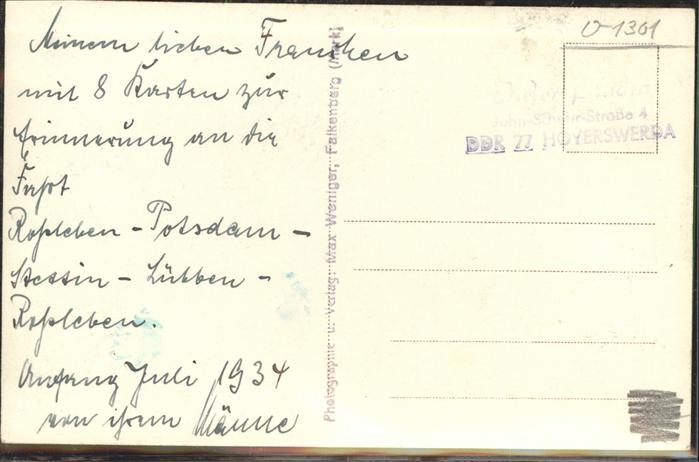 Meinem lieben Frauchen
mit 8 Karten zur
Erinnerung an die
Fahrt
Roßleben - Potsdam -
Stettin - Lübben -
Roßleben.
Anfang Juli 1934
von ihrem Männe
Photographie u. Verlag: Max Weniger, Falkenberg (Mark)
O-1301
Dieter
-Straße 4
DDR 77 HOYERSWERDA